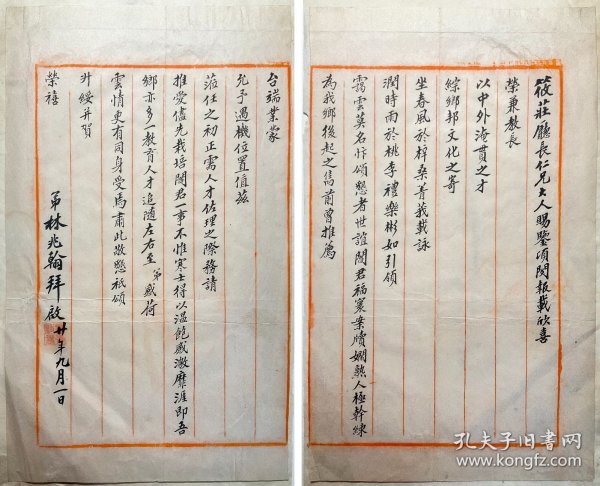 筱莊廳長仁兄大人賜鑒頃閱報載欣喜
榮兼教長
以中外淹貫之才
綜鄉邦文化之寄
坐春風於梓桑菁莪載詠
潤時雨於桃李禮樂彬如引領
靄雲莫名忭頌懇者世誼閻君福寰案牘嫻熟人極幹練
為我鄉後起之雋前曾推薦
台端業蒙
允予過機位置值茲
蒞任之初正需人才佐理之際務請
推愛儘先栽培閻君一事不惟寒士得以溫飽感激靡涯即吾
鄉亦多一教育人才追隨左右至弟感荷
雲情更有同身受焉肅此敬懇祗頌
升綏并賀
榮禧
弟林兆翰拜啟 廿年九月一日
孔夫子旧书网
www.kongfz.com